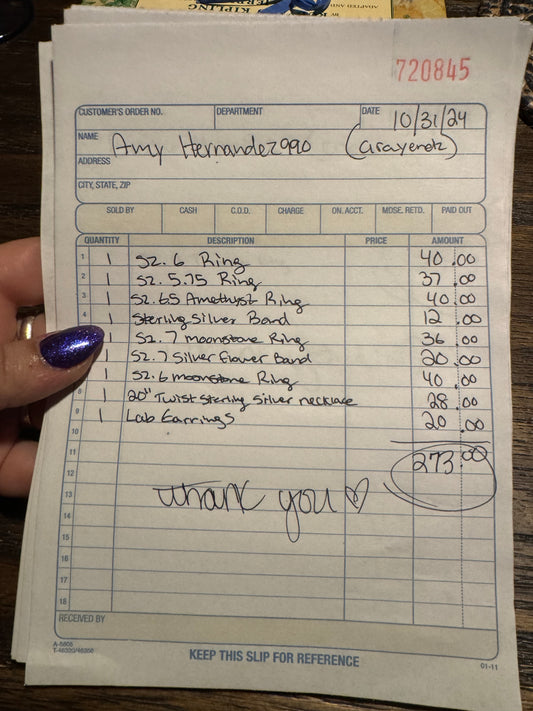 KIPLING
ADAPTED AND
720845
CUSTOMER'S ORDER NO. DEPARTMENT DATE 10/31/24
NAME Amy Hernandez990
ADDRESS
CITY, STATE, ZIP
SOLD BY CASH C.O.D. CHARGE ON. ACCT. MDSE. RETD. PAID OUT
QUANTITY DESCRIPTION PRICE AMOUNT
1 1 Sz. 6 Ring 40.00
2 1 Sz. 5.75 Ring 37.00
3 1 Sz. 6.5 Amethyst Ring 40.00
4 1 Sterling Silver Band 12.00
Sz. 7 moonstone Ring 36.00
Sz. 7 Silver flower Band 20.00
1 Sz. 6 moonstone Ring 40.00
8 1 20" Twist Sterling Silver necklace 28.00
9 1 Lab Earrings 20.00
10
11 273.00
12
13 Thank you ♡
14
15
16
17
18
RECEIVED BY
A-5805
T-46320/46350
KEEP THIS SLIP FOR REFERENCE
01-11